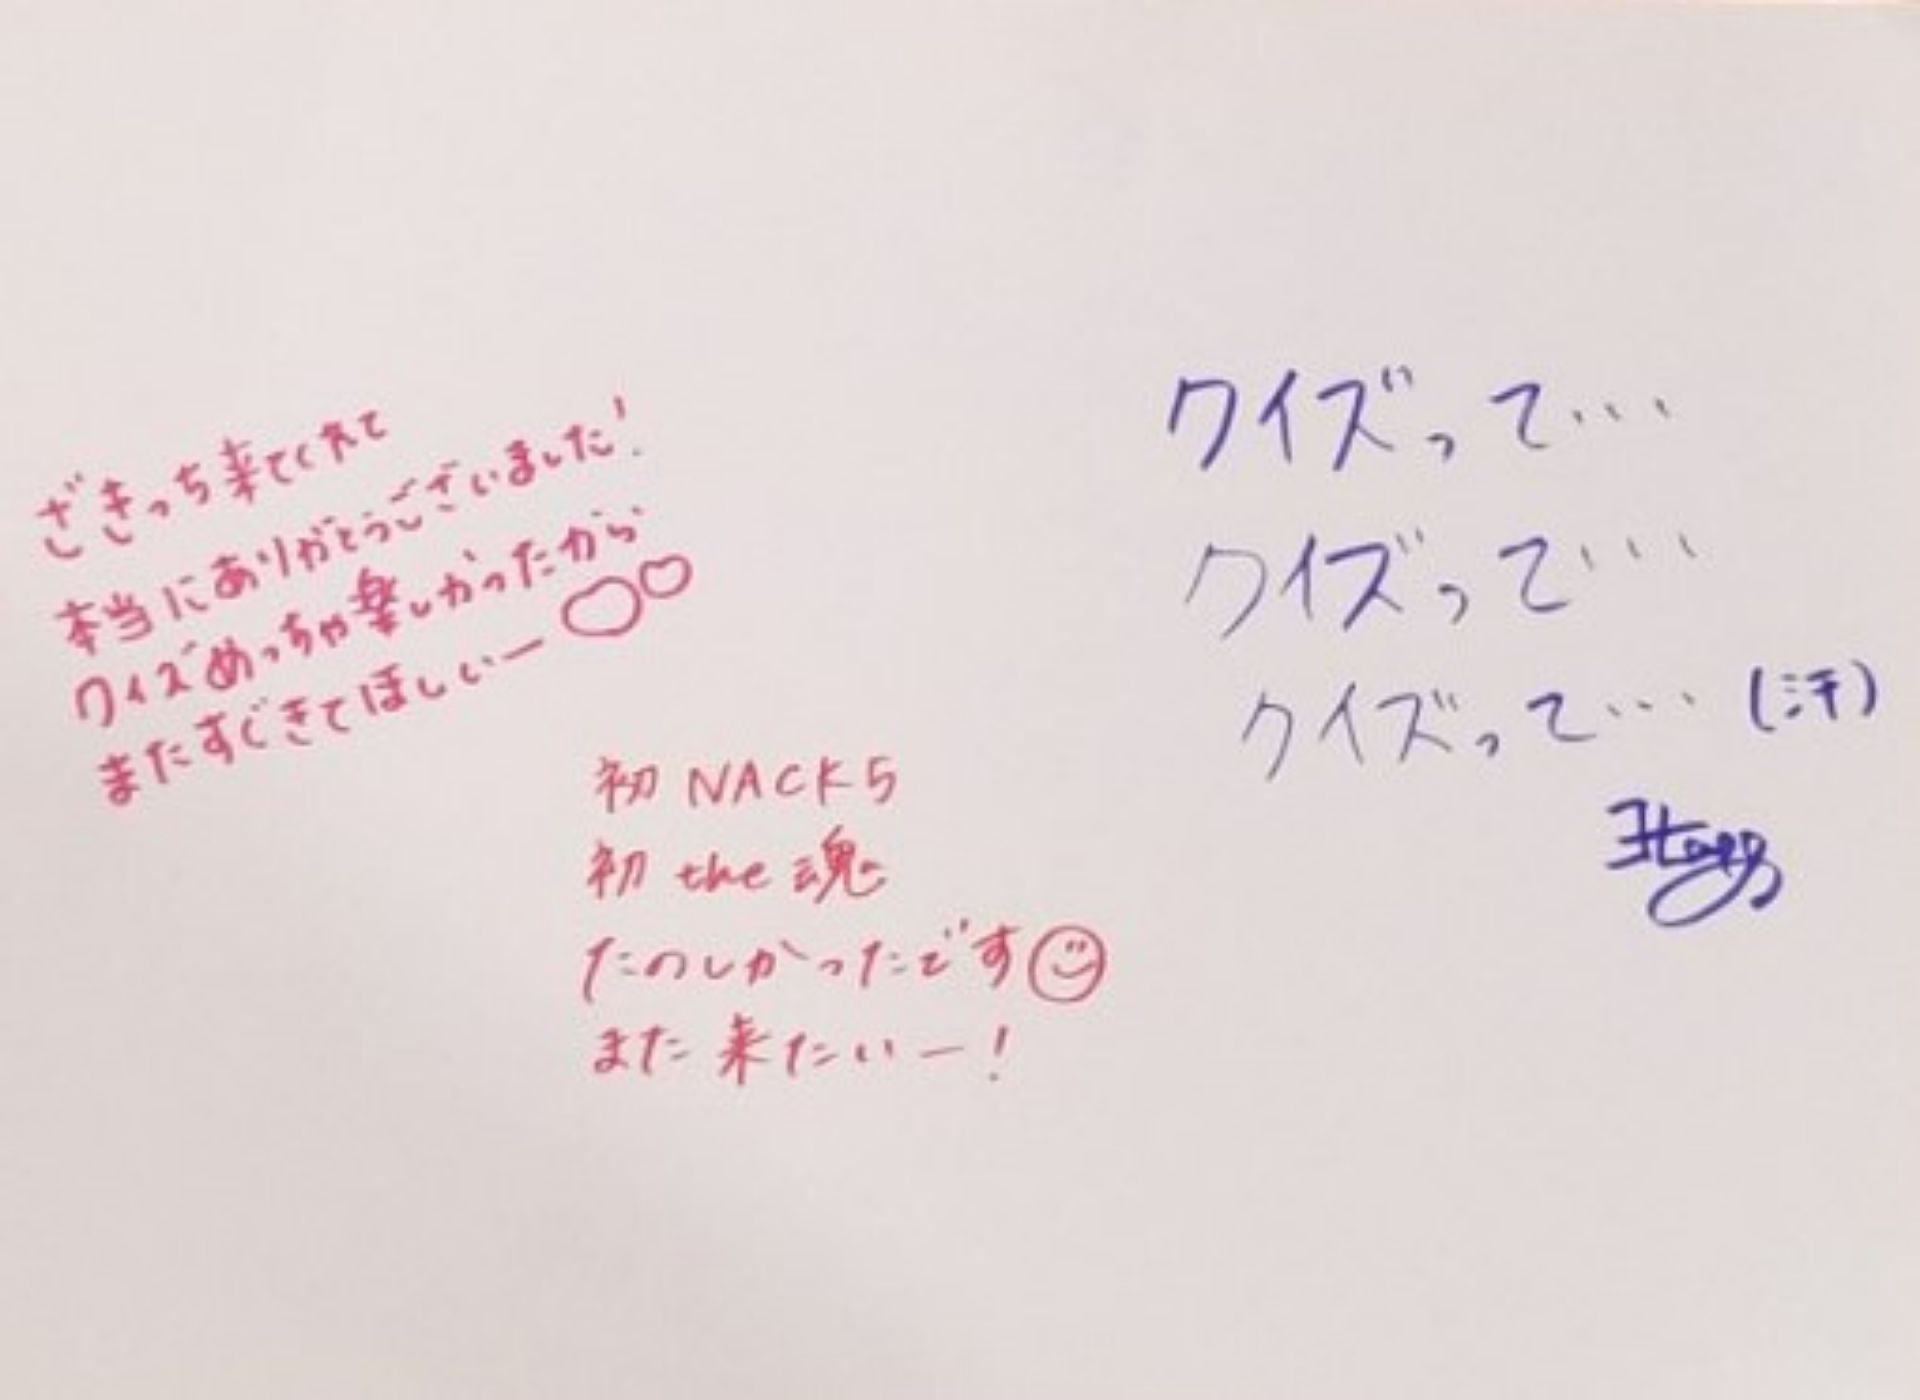 ざきっち来てくれて
本当にありがとうございました!
クイズめっちゃ楽しかったから
またすぐきてほしいー
初 NACK5
初 the 魂
たのしかったです
また来たいー!
クイズって...
クイズって...
クイズって... (汗)